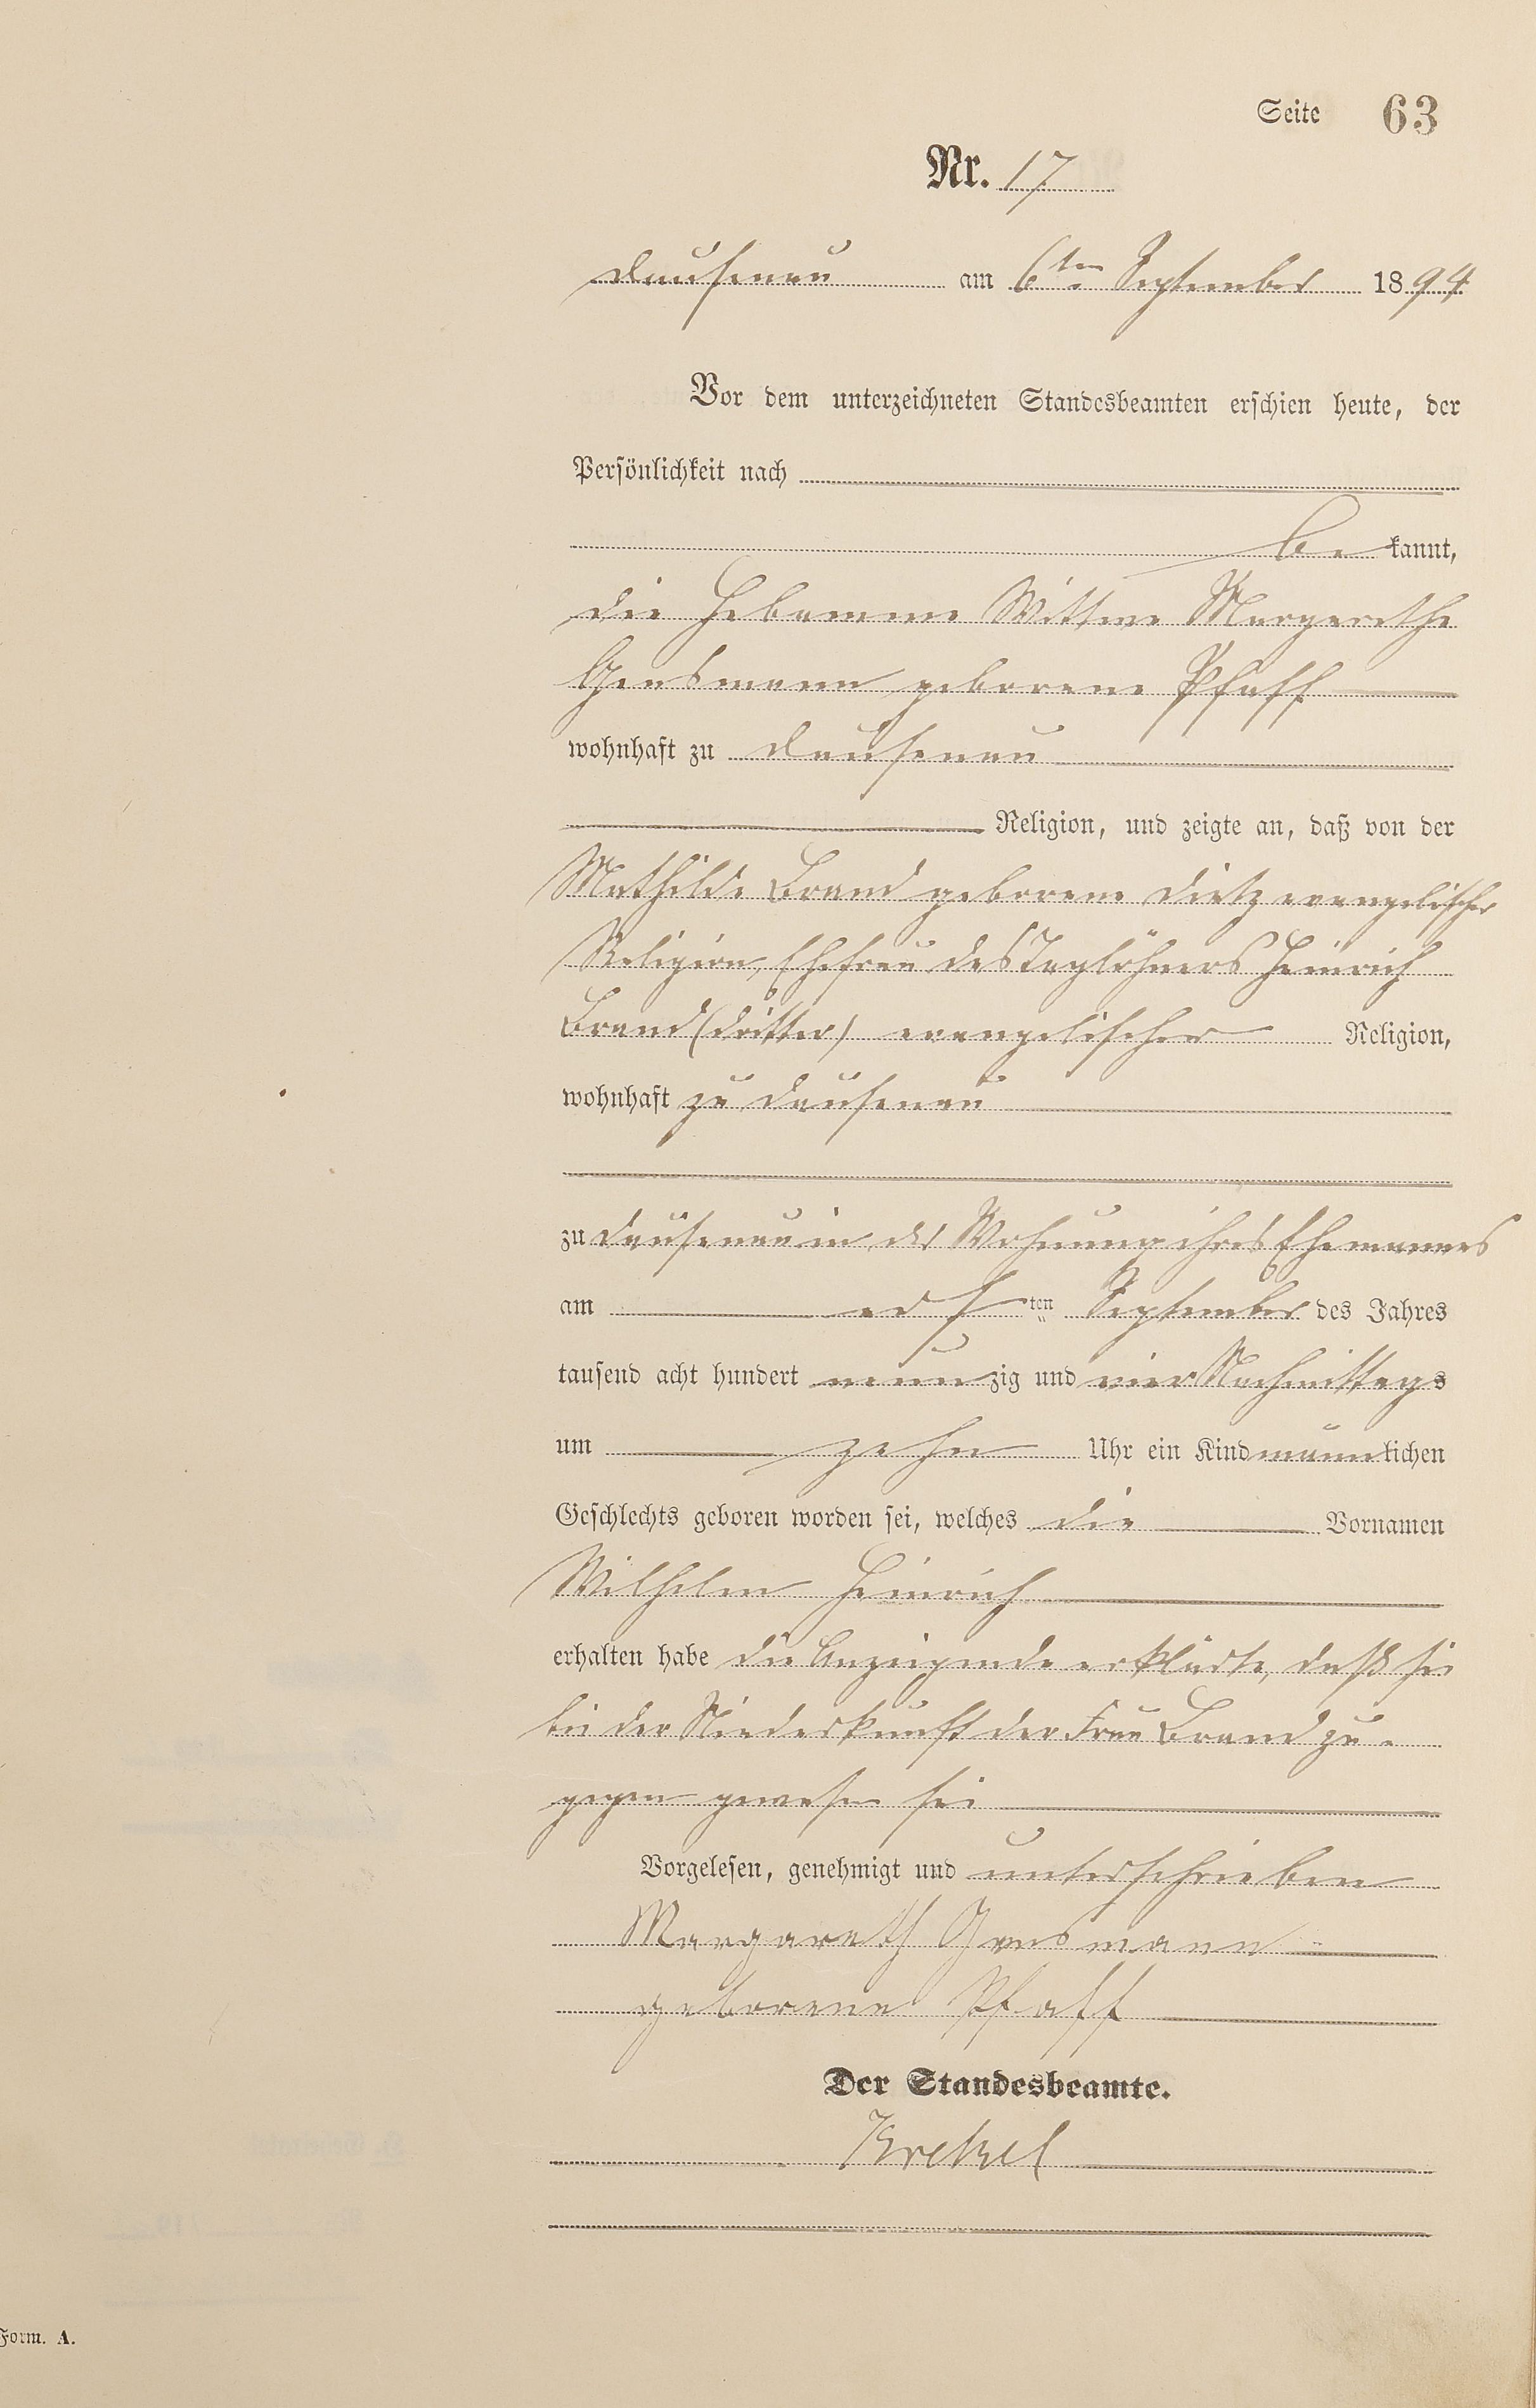 Seite 63
Nr. 17
Dausenau am 6ten September 1894
Vor dem unterzeichneten Standesbeamten erschien heute, der
Persönlichkeit nach
bekannt,
die Hebamme Wittwe Margarethe
Gensmann geborene Pfaff
wohnhaft zu Dausenau
Religion, und zeigte an, daß von der
Mathilde Brand geborene Dietz evangelischer
Religion, Ehefrau des Taglöhners Heinrich
Brand (dritter) evangelischer Religion,
wohnhaft zu Dausenau
zu Dausenau in der Wohnung ihres Ehemannes
am ersten September des Jahres
tausend acht hundert neunzig und vier Nachmittags
um zehn Uhr ein Kind männlichen
Geschlechts geboren worden sei, welches die Vornamen
Wilhelm Heinrich
erhalten habe die Anzeigende erklärte, daß sie
bei der Niederkunft der Frau Brand zu-
gegen gewesen sei
Vorgelesen, genehmigt und unterschrieben
Margareth Gensmann
geborene Pfaff
Der Standesbeamte.
Krekel
Form. A.